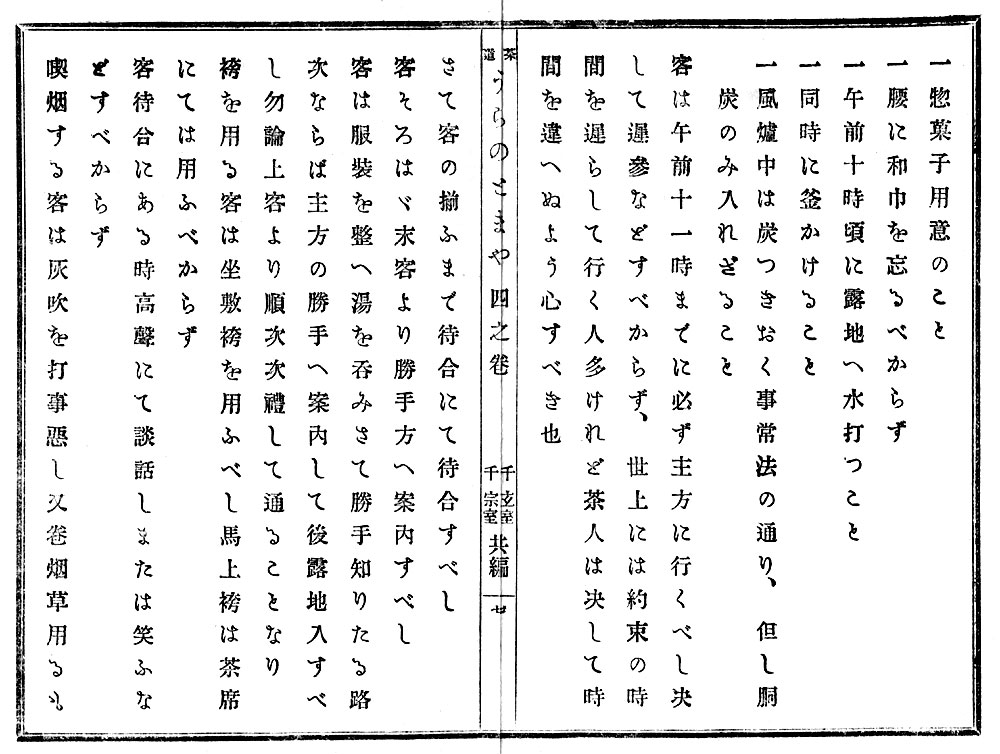 一惣菓子用意のこと
一腰に和巾を忘るべからず
一午前十時頃に露地へ水打つこと
一同時に釜かけること
一風爐中は炭つきおく事常法の通り、但し胴
炭のみ入れざること
客は午前十一時までに必ず主方に行くべし决
して遲參などすべからず、世上には約束の時
間を遲らして行く人多けれど茶人は决して時
間を違へぬよう心すべき也
茶道 うらのとまや 四之卷 千玄室 千宗室 共編
さて客の揃ふまで待合にて待合すべし
客そろはヾ末客より勝手方へ案內すべし
客は服裝を整へ湯を呑みさて勝手知りたる路
次ならば主方の勝手へ案內して後露地入すべ
し勿論上客より順次次禮して通ることなり
袴を用る客は坐敷袴を用ふべし馬上袴は茶席
にては用ふべからず
客待合にある時高聲にて談話しまたは笑ふな
どすべからず
喫烟する客は灰吹を打事惡し又卷烟草用るも